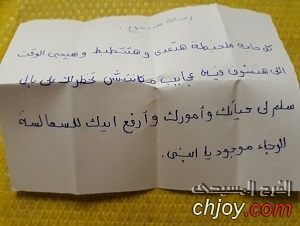 رسالة من يسوع
كل حاجة ملخبطة هتعدى وهتتظبط وهيجى الوقت
اللى هتشوف فيه عجايب مكانتش تخطرلك على بال
سلم لى حياتك وأمورك وأرفع ايدك للسما لسة
الرجاء موجود يا ابنى.
الفرح المسيحى
chjoy.com